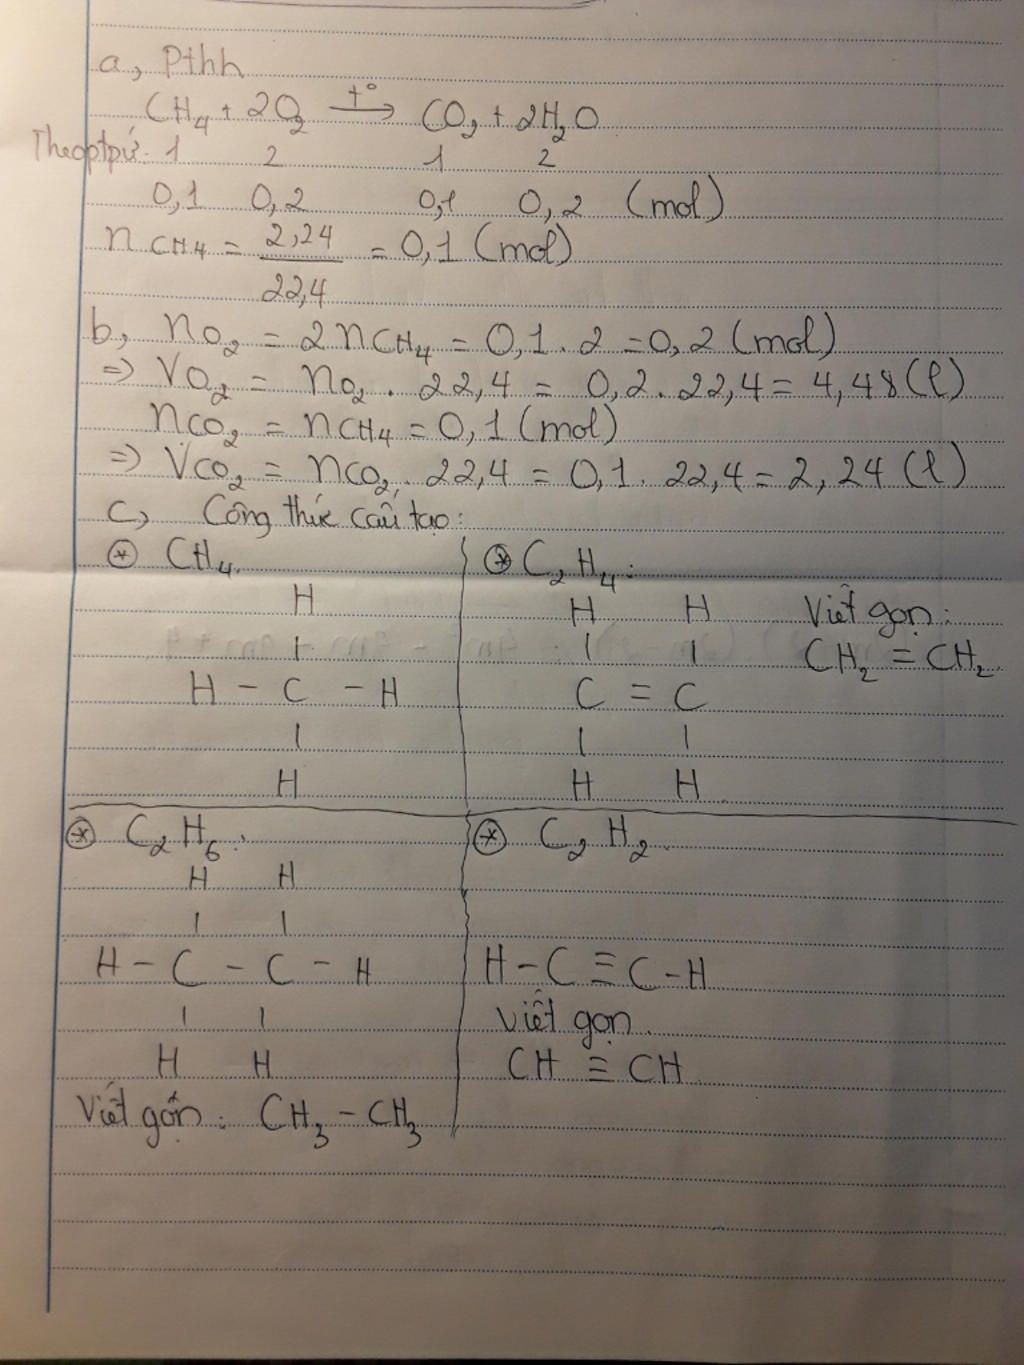 a, Pthh
CH₄ + 2O₂ —t°→ CO₂ + 2H₂O
Theo ptpứ: 1 2 1 2
0,1 0,2 0,1 0,2 (mol)
nCH₄ = 2,24/22,4 = 0,1 (mol)
b, nO₂ = 2nCH₄ = 0,1 . 2 = 0,2 (mol)
=> VO₂ = nO₂ . 22,4 = 0,2 . 22,4 = 4,48 (l)
nCO₂ = nCH₄ = 0,1 (mol)
=> VCO₂ = nCO₂ . 22,4 = 0,1 . 22,4 = 2,24 (l)
c, Công thức cấu tạo:
⊛ CH₄
H
|
H – C – H
|
H
⊛ C₂H₄:
H H
| |
C = C
| |
H H
Viết gọn:
CH₂ = CH₂
⊛ C₂H₆:
H H
| |
H – C – C – H
| |
H H
Viết gọn: CH₃ – CH₃
⊛ C₂H₂
H – C ≡ C – H
Viết gọn.
CH ≡ CH